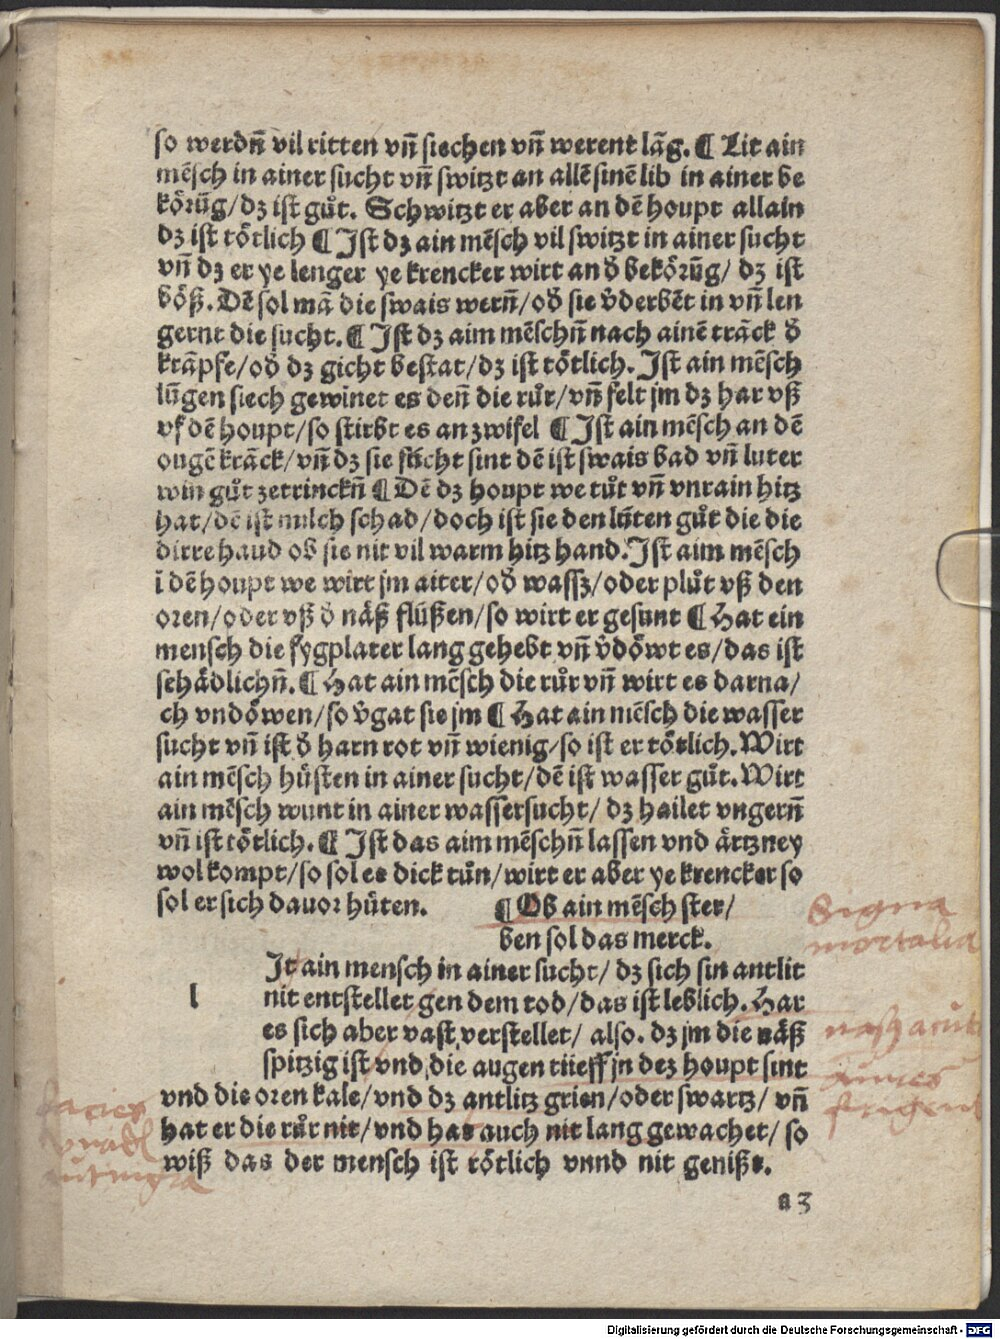 so werdñ vil ritten vñ siechen vñ werent lãg. ¶ Lit ain
mẽsch in ainer sucht vñ switzt an allẽ sinẽ lib in ainer be
kõꝛũg/dʒ ist gůt. Schwitzt er aber an dẽ houpt allain
dʒ ist tȍtlich ¶ Ist dʒ ain mẽsch vil switzt in ainer sucht
vñ dʒ er ye lenger ye krencker wirt an d̓ bekörũg/ dʒ ist
böß. Dẽ sol mã die swais wern̄/od̓ sie v̓derbẽt in vñ len
gernt die sucht. ¶ Ist dʒ aim mẽschñ nach ainẽ trãck d̓
krãpfe/od̓ dʒ gicht bestat/dʒ ist tȍtlich. Ist ain mẽsch
lũgen siech gewinet es deñ die růr/vñ felt jm dʒ har vß
vf dẽ houpt/so stirbt es an zwifel ¶ Ist ain mẽsch an dẽ
ougẽ krãck/vñ dʒ sie fücht sint dẽ ist swais bad vñ luter
win gůt zetrinckñ ¶ Dẽ dʒ houpt we tůt vñ vnrain hitz
hat/dẽ ist milch schad/doch ist sie den lüten gůt die die
dirre haud ob sie nit vil warm hitz hand. Ist aim mẽsch
ĩ dẽ houpt we wirt jm aiter/od̓ wassʒ/oder plůt vß den
oꝛen/oder vß d̓ näß flüßen/so wirt er gesunt ¶ Hat ein
mensch die fygplater lang gehebt vñ v̓döwt es/das ist
sehädlichñ. ¶ Hat ain mẽsch die růr vñ wirt es darna/
ch vndöwen/so v̓gat sie jm ¶ Hat ain mẽsch die wasser
sucht vñ ist d̓ harn rot vñ wienig/so ist er tȍtlich. Wirt
ain mẽsch hůsten in ainer sucht/dẽ ist wasser gůt. Wirt
ain mẽsch wunt in ainer wassersucht/ dʒ hailet vngerñ
vñ ist tȍtlich. ¶ Ist das aim mẽschñ lassen vnd ärtzney
wol kompt/so sol es dick tůn/wirt er aber ye krencker so
sol er sich dauoꝛ hüten. ¶ Ob ain mẽsch ster/
ben sol das merck.
Signa
mortalia
It ain mensch in ainer sucht/ dʒ sich sin antlit
l nit entstellet gen dem tod/das ist leblich. Hat
es sich aber vast verstellet/ also. dʒ jm die näß
nasz acut
spitzig ist vnd die augen tiieff jn deʒ houpt sint
aures
frigent
vnd die oꝛen kale/vnd dʒ antlitz grien/oder swartz/ vñ
facies
hat er die růr nit/vnd hat auch nit lang gewachet/ so
wiß das der mensch ist tȍtlich vnnd nit genißt.
a 3
Digitalisierung gefördert durch die Deutsche Forschungsgemeinschaft - DFG